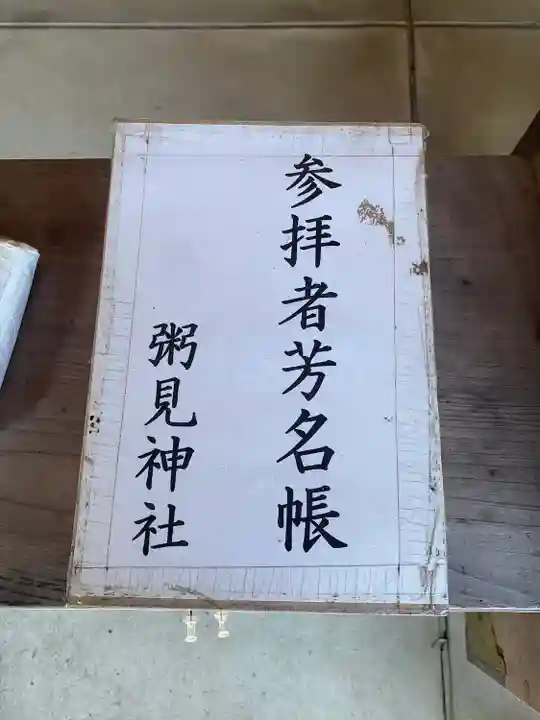 参拝者芳名帳
粥見神社